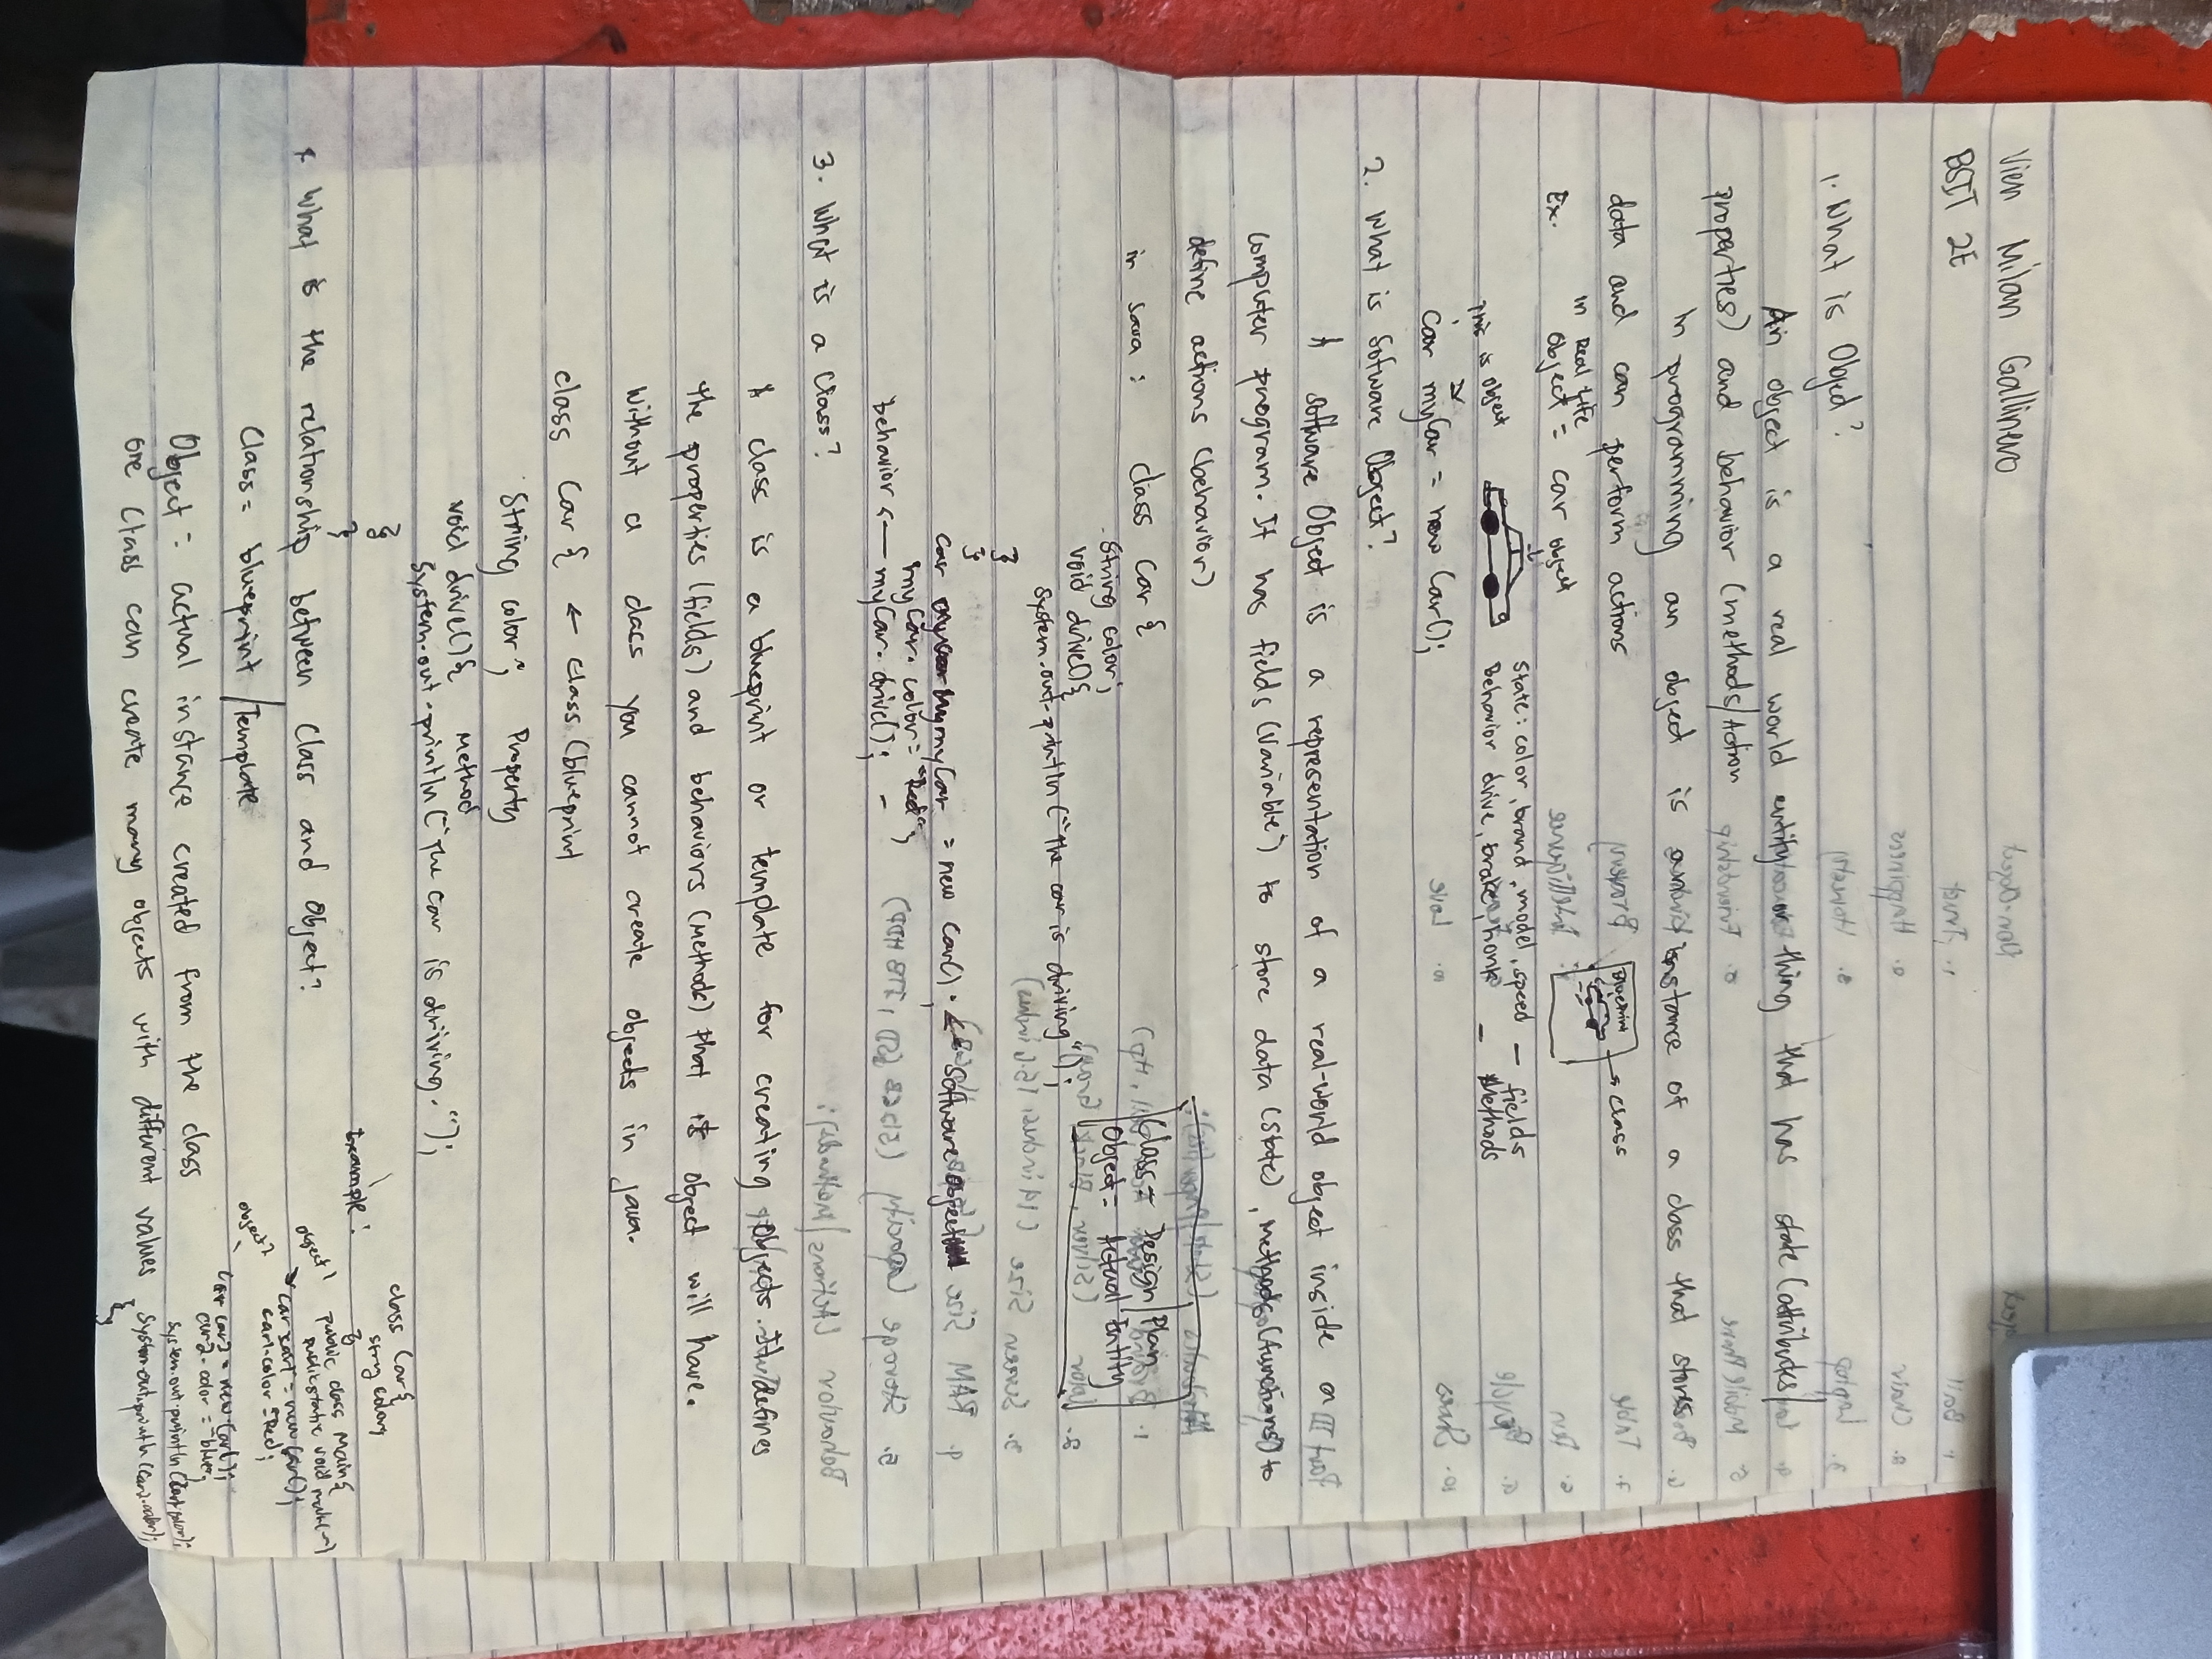 Vien Milan Gallinero
BSIT 2E
1. What is Object?
An object is a real world entity or thing that has state (attributes/
properties) and behavior (methods/Action
In programming an object is an instance of a class that stores
data and can perform actions
Ex. in Real Life
Object = car object
Blueprint → class
This is object
State: color, brand, model, speed - fields
Behavior drive, brake, honk - Methods
Car myCar = new Car();
2. What is Software Object?
A software Object is a representation of a real-world object inside a
computer program. It has fields (Variable) to store data (State), methods (functions) to
define actions (behavior)
in Java : class Car {
String color;
void drive() {
System.out.println("the car is driving");
}
}
Class = Design / Plan
Object = Actual Entity
Car myCar = new Car(); ← Software object
myCar.color = "Red";
behavior ← myCar.drive(); -
3. What is a Class?
A class is a blueprint or template for creating objects. It defines
the properties (fields) and behaviors (methods) that its object will have.
Without a class you cannot create objects in Java.
class Car { ← class (blueprint
String color; Property
void drive() { Method
System.out.println("The car is driving.");
}
}
* What is the relationship between Class and Object?
Class = blueprint / Template
Object = actual instance created from the class
one Class can create many objects with different values
Example :
class Car {
string color;
public class Main {
public static void main(
object 1 → Car car1 = new Car();
car1.color = Red;
object 2 Car car2 = new Car();
car2.color = blue;
System.out.println(car1.color);
System.out.println(car2.color);
}